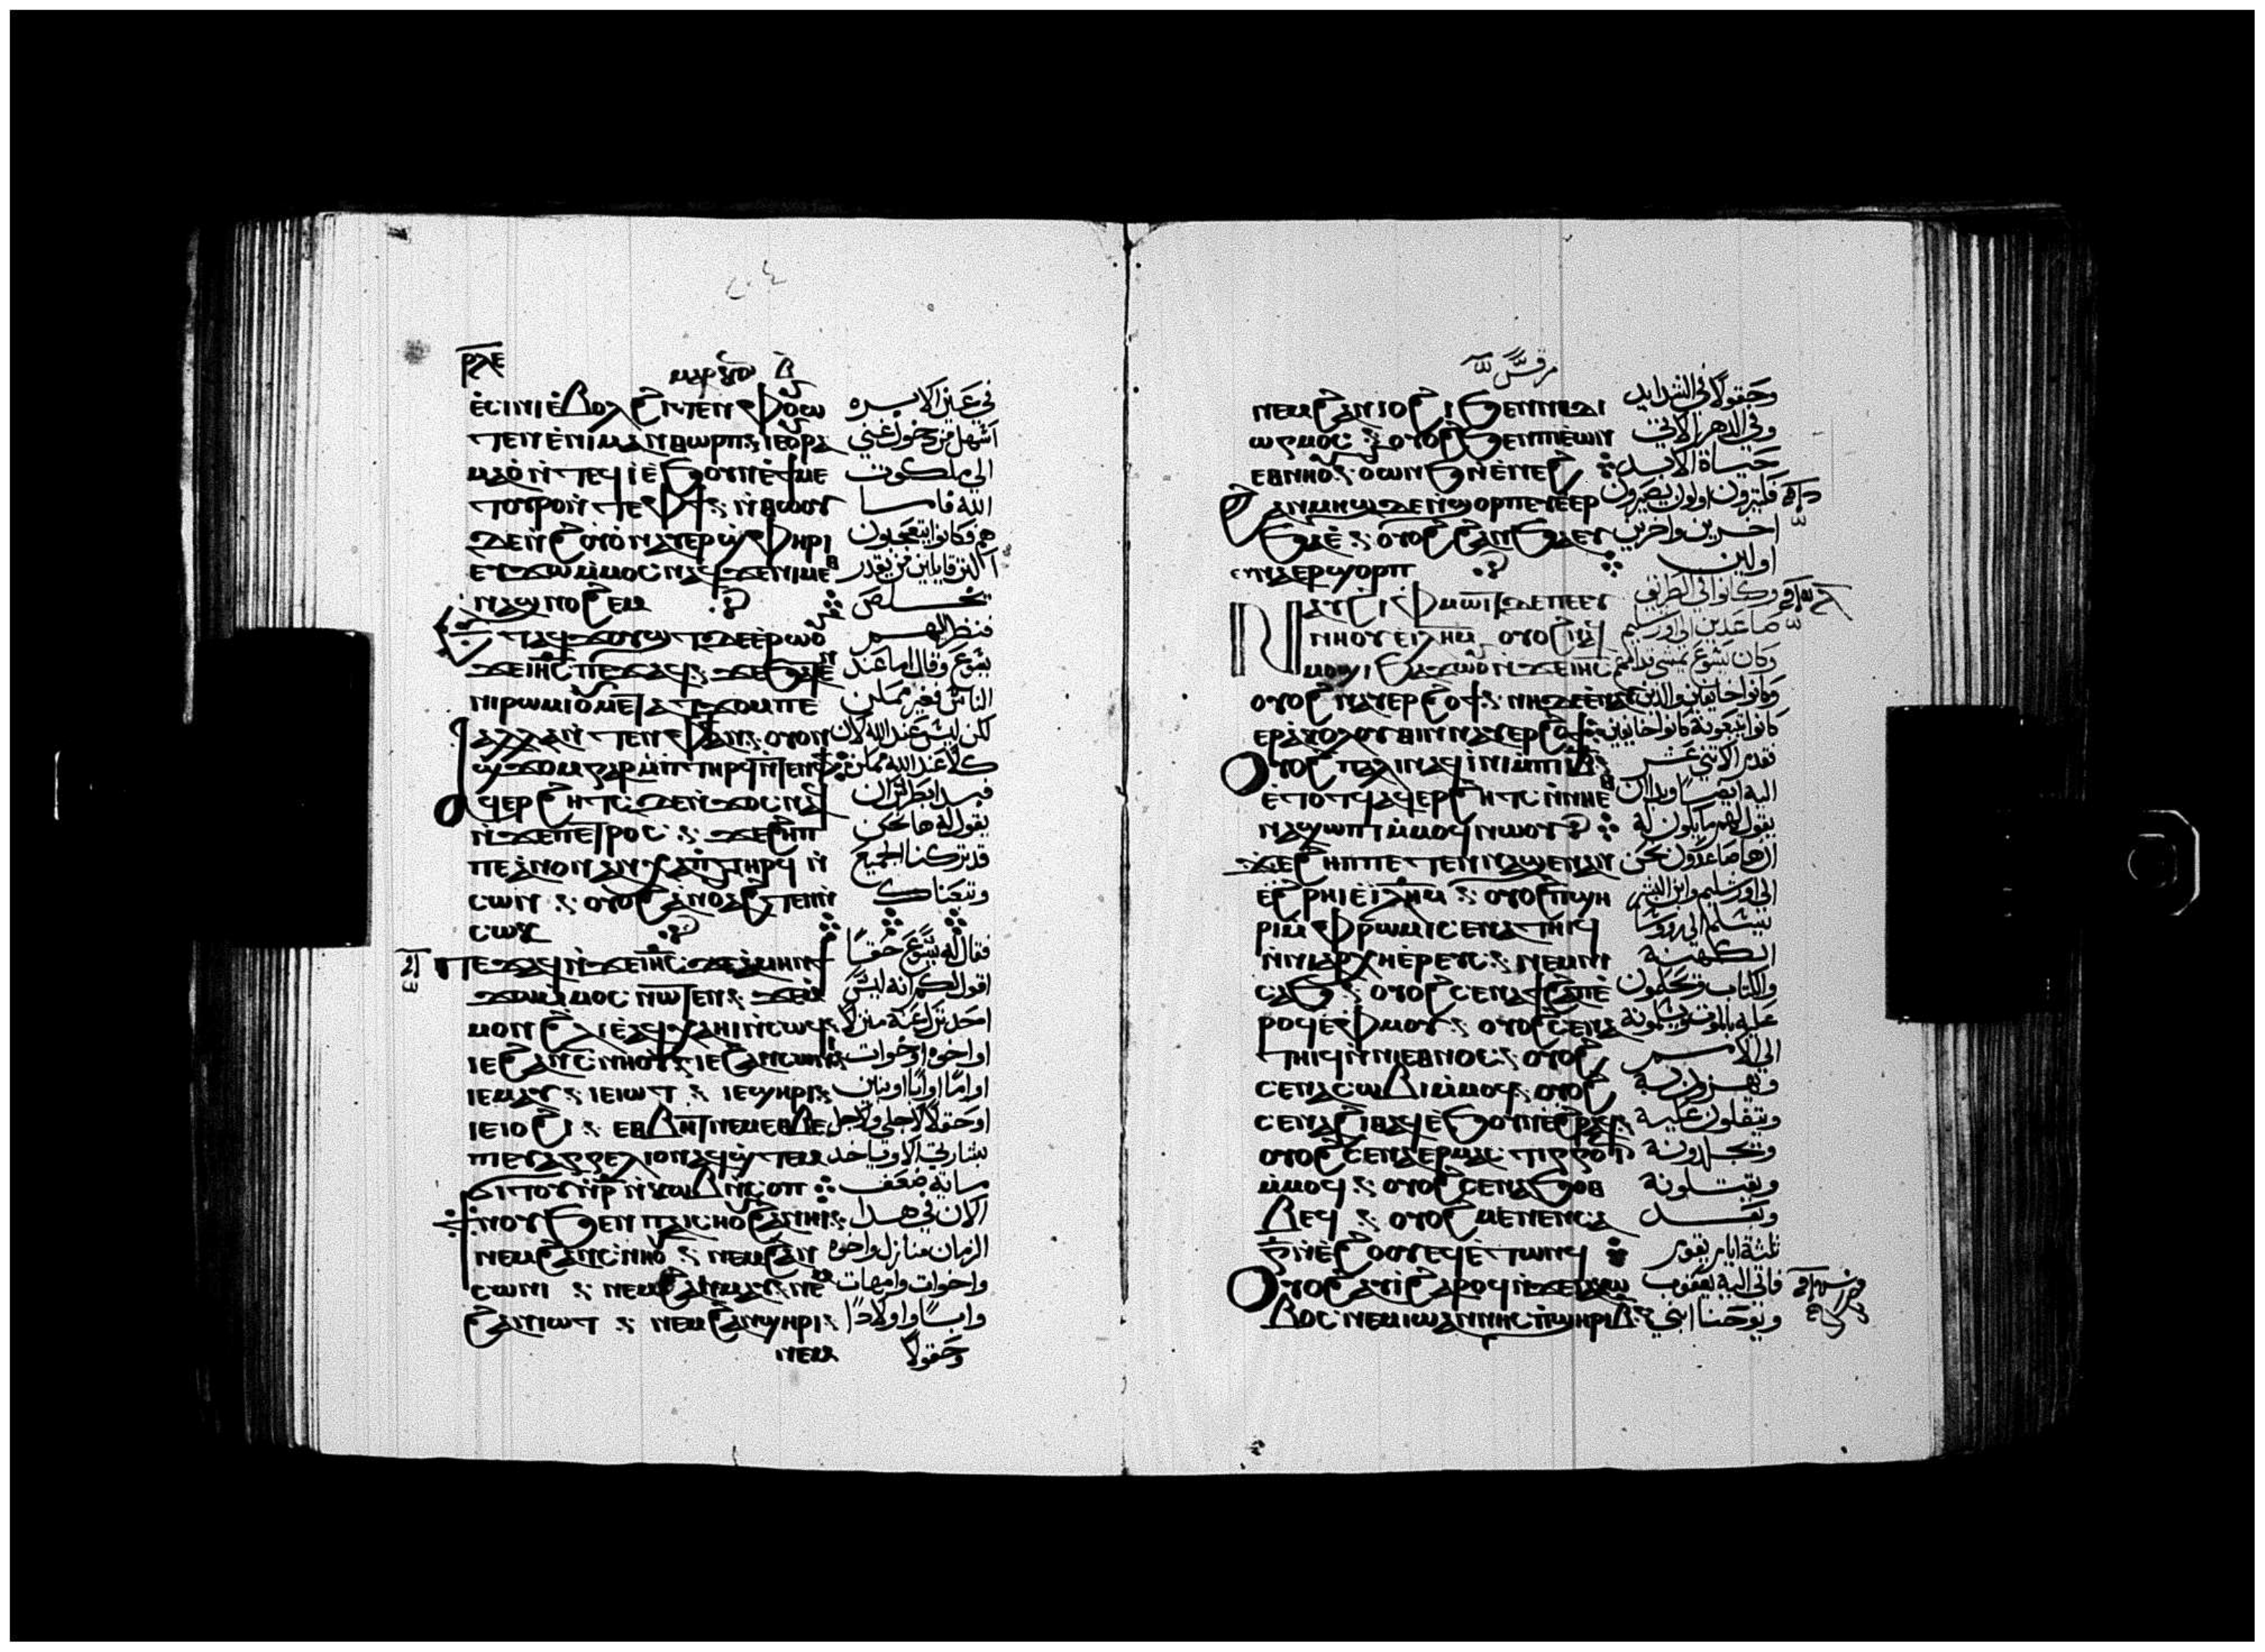 ⲣⲗⲉ
ⲙⲁⲣⲕⲟⲛ
ⲉ̀ⲥⲓⲛⲓ ⲉ̀ⲃⲟⲗ ϩⲓⲧⲉⲛ ⲫⲟⲩⲱ
ⲧⲉⲛ ⲉ̀ⲛⲓⲙⲁⲛⲑⲱⲣⲡ ⲓⲉ ⲟⲩⲣⲁ
ⲙⲁⲟ̀ ⲛ̀ⲧⲉϥⲓ̀ ⲉ̀ϧⲟⲩⲛ ⲉ̀ϯⲙⲉ
ⲧⲟⲩⲣⲟ ⲛ̀ⲧⲉ ⲫϯ ⲛ̀ⲑⲱⲟⲩ
ⲇⲉ ⲛ̀ϩⲟⲩⲟ̀ ⲛⲁⲩⲉⲣϣ̀ⲫⲏⲣⲓ
ⲉⲩϫⲱ ⲙ̀ⲙⲟⲥ ⲛⲁϥ ϫⲉ ⲛⲓⲙ ⲉⲑ
ⲛⲁϣ̀ⲛⲟϩⲉⲙ
ⲉⲧⲁϥϫⲟⲩϣⲧ ⲇⲉ ⲉ̀ⲣⲱⲟⲩ
ⲛ̀ϫⲉ ⲓⲏⲥ ⲡⲉϫⲁϥ ϫⲉ ϧⲁⲧⲉⲛ
ⲛⲓⲣⲱⲙⲓ ⲟⲩⲙⲉⲧⲁⲧϫⲟⲙ ⲡⲉ
ⲁⲗⲗⲁ ⲛ̀ⲧⲉⲛ ⲫϯ ⲁⲛ ⲟⲩⲟⲛ
ϣϫⲟⲙ ⲅⲁⲣ ⲙ̀ⲡⲧⲏⲣϥ ⲛ̀ⲧⲉⲛ ⲫϯ
ⲁϥⲉⲣϩⲏⲧⲥ ⲇⲉ ⲛ̀ϫⲟⲥ ⲛⲁϥ
ⲛ̀ϫⲉ ⲡⲉⲧⲣⲟⲥ ϫⲉ ϩⲏⲡ
ⲡⲉ ⲁ̀ⲛⲟⲛ ⲁⲛⲭⲁ ⲡⲧⲏⲣϥ ⲛ̀
ⲥⲱⲛ ⲟⲩⲟϩ ⲁ̀ⲛⲟⲩⲁϩⲧⲉⲛ ⲛ̀
ⲥⲱⲕ
ⲡⲉϫⲁϥ ⲛ̀ϫⲉ ⲓⲏⲥ ϫⲉ ⲁ̀ⲙⲏⲛ ϯ
ϫⲱ ⲙ̀ⲙⲟⲥ ⲛⲱⲧⲉⲛ ϫⲉ ⲙ̀
ⲙⲟⲛ ϩⲗⲓ ⲉ̀ⲁϥⲭⲁ ⲏⲓ ⲛ̀ⲥⲱϥ
ⲓⲉ ϩⲁⲛⲥⲛⲏⲟⲩ ⲓⲉ ϩⲁⲛⲥⲱⲛⲓ
ⲓⲉ ⲙⲁⲩ ⲓⲉ ⲓⲱⲧ ⲓⲉ ϣⲏⲣⲓ
ⲓⲉ ⲓⲟϩⲓ ⲉⲑⲃⲏⲧ ⲛⲉⲙ ⲉⲑⲃⲉ
ⲡⲓⲉⲩⲁⲅⲅⲉⲗⲓⲟⲛ ⲛⲁϥϣ̀ⲧⲉⲙ
ϭⲓⲧⲟⲩ ⲛ̀ⲣ̄ ⲛ̀ⲕⲱⲃ ⲛ̀ⲥⲟⲡ
ϯⲛⲟⲩ ϧⲉⲛ ⲡⲁⲓⲥⲏⲟⲩ ϩⲁⲛⲏⲓ
ⲛⲉⲙ ϩⲁⲛⲥⲛⲏⲟⲩ ⲛⲉⲙ ϩⲁⲛ
ⲥⲱⲛⲓ ⲛⲉⲙ ϩⲁⲛⲙⲁⲩ ⲛⲉⲙ
ϩⲁⲛⲓⲱⲧ ⲛⲉⲙ ϩⲁⲛϣⲏⲣⲓ
ⲛⲉⲙ
في عين الابره
اسهل من دخول غني
الى ملكوت
الله فاما
هم فكانوا يتعجبون
اكثر قايلين من يقدر
يخلص
فنظر اليهم
يسوع وقال اما عند
الناس فغير ممكن
لكن ليس عند الله لان
كلا عند الله ممكن
فبدا بطرس ان
يقول له ها نحن
قد تركنا الجميع
وتبعناك
فقال له يسوع حقًا
اقول لكم انه ليس
احد ترك عنه منزلا
او اخوه او اخوات
او امًا او ابًا او بنين
او حقولا لاجلي ولاجل
بشارتي الا وياخد
ماية ضعف
الان في هدا
الزمان منازل واخوه
واخوات وامهات
وابًا واولادًا
وحقولا
مرقس
ⲛⲉⲙ ϩⲁⲛⲓⲟϩⲓ ϧⲉⲛ ⲛⲓⲇⲓ
ⲱⲅⲙⲟⲥ ⲟⲩⲟϩ ϧⲉⲛ ⲡⲓⲉ̀ⲱⲛ
ⲉⲑⲛⲏⲟⲩ ⲟⲩⲱⲛϧ ⲛ̀ⲉⲛⲉϩ
ϩⲁⲛⲙⲏϣ ⲇⲉ ⲛ̀ϣⲟⲣⲡ ⲉⲩⲉ̀ⲉⲣ
ϧⲁⲉ̀ ⲟⲩⲟϩ ϩⲁⲛϧⲁⲉⲩ
ⲉⲩⲛⲁⲉⲣϣⲟⲣⲡ
ⲛⲁⲩϩⲓ ⲫⲙⲱⲓⲧ ⲇⲉ ⲡⲉ ⲉⲩ
ⲛⲏⲟⲩ ⲉ̀ⲓⲗⲏⲙ ⲟⲩⲟϩ ⲛⲁϥ
ⲙⲟϣⲓ ϧⲁϫⲱⲟⲩ ⲛ̀ϫⲉ ⲓⲏⲥ
ⲟⲩⲟϩ ⲛⲁⲩⲉⲣϩⲟϯ ⲛⲏ ⲇⲉ ⲉ̀ⲛⲁⲩ
ⲉⲣⲁ̀ⲕⲟⲗⲟⲩⲑⲓⲛ ⲛⲁⲩⲉⲣϩⲟϯ
ⲟⲩⲟϩ ⲡⲁⲗⲓⲛ ⲁϥⲓ̀ⲛⲓ ⲙ̀ⲡⲓⲓⲃ
ⲉ̀ⲧⲟⲧϥ ⲁϥⲉⲣϩⲏⲧⲥ ⲛ̀ⲛⲏ ⲉⲑ
ⲛⲁϣⲱⲡⲓ ⲙ̀ⲙⲟϥ ⲛⲱⲟⲩ
ϫⲉ ϩⲏⲡⲡⲉ ⲧⲉⲛⲛⲁϣⲉⲛⲁⲛ
ⲉ̀ϩⲣⲏⲓ ⲉ̀ⲓⲗⲏⲙ ⲟⲩⲟϩ ⲡϣⲏ
ⲣⲓ ⲙ̀ⲫⲣⲱⲙⲓ ⲥⲉⲛⲁⲧⲏⲓϥ
ⲛ̀ⲛⲓⲁⲣⲭⲏⲉ̀ⲣⲉⲩⲥ ⲛⲉⲙ ⲛⲓ
ⲥⲁϧ ⲟⲩⲟϩ ⲥⲉⲛⲁϯϩⲁⲡ ⲉ̀
ⲣⲟϥ ⲉ̀ⲫⲙⲟⲩ ⲟⲩⲟϩ ⲥⲉⲛⲁ
ⲧⲏⲓϥ ⲛ̀ⲛⲓⲉⲑⲛⲟⲥ ⲟⲩⲟϩ
ⲥⲉⲛⲁⲥⲱⲃⲓ ⲙ̀ⲙⲟϥ ⲟⲩⲟϩ
ⲥⲉⲛⲁϩⲓⲑⲁϥ ⲉ̀ϧⲟⲩⲛ ⲉ̀ϩⲣⲁϥ
ⲟⲩⲟϩ ⲥⲉⲛⲁⲉⲣⲙⲁⲥⲧⲓⲅⲅⲟⲓⲛ
ⲙ̀ⲙⲟϥ ⲟⲩⲟϩ ⲥⲉⲛⲁϧⲟⲑ
ⲃⲉϥ ⲟⲩⲟϩ ⲙⲉⲛⲉⲛⲥⲁ
ⲅ̄ ⲛ̀ⲉ̀ϩⲟⲟⲩ ⲉϥⲉ̀ⲧⲱⲛϥ
ⲟⲩⲟϩ ⲁⲩⲓ̀ ϩⲁⲣⲟϥ ⲛ̀ϫⲉ ⲓⲁⲕⲱ
ⲃⲟⲥ ⲛⲉⲙ ⲓⲱⲁⲛⲛⲏⲥ ⲡ̀ϣⲏⲣⲓ ⲃ̄
وحقولا في الشدايد
وفي الدهر الاتي
حياة الابد
فكثيرون اولون يصيرون
اخرين واخرين
اولين
وكانوا في الطريق
صاعدين الى اورشليم
وكان يسوع يمشي قدامهم
وكانوا خايفين والدين
كانوا يتبعونه كانوا خايفين
فقدم الاتني عشر
اليه ايضًا وبدا ان
يقول لهم ما يكون له
ان ها صاعدون نحن
الى اورشليم وابن البشر
يسلم الى روسا
الكهنه
والكتاب ويحكمون
عليه بالموت ويسلمونه
الى الامم
ويهزون به
ويتفلون عليه
ويجلدونه
ويقتلونه
وبعد
ثلثة ايام يقوم
فاتى اليه يعقوب
ويوحنا ابني